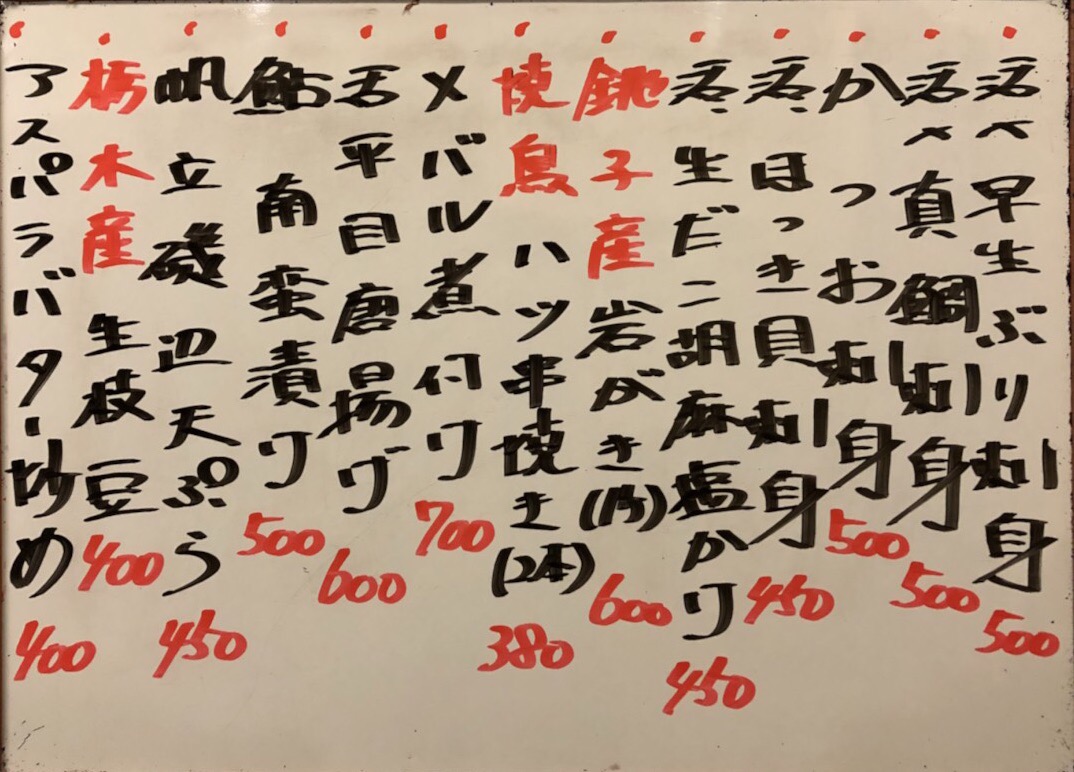 活〆早生ぶり刺身 500
活〆真鯛刺身 500
かつお刺身 500
活ほっき貝刺身 450
活生だこ胡麻塩かけ 450
銚子産岩がき(1ヶ) 600
焼鳥 ハツ串焼き(2本) 380
メバル煮付け 700
活平目唐揚げ 600
鮎南蛮漬け 500
帆立磯辺天ぷら 450
栃木産生枝豆 400
アスパラバター炒め 400